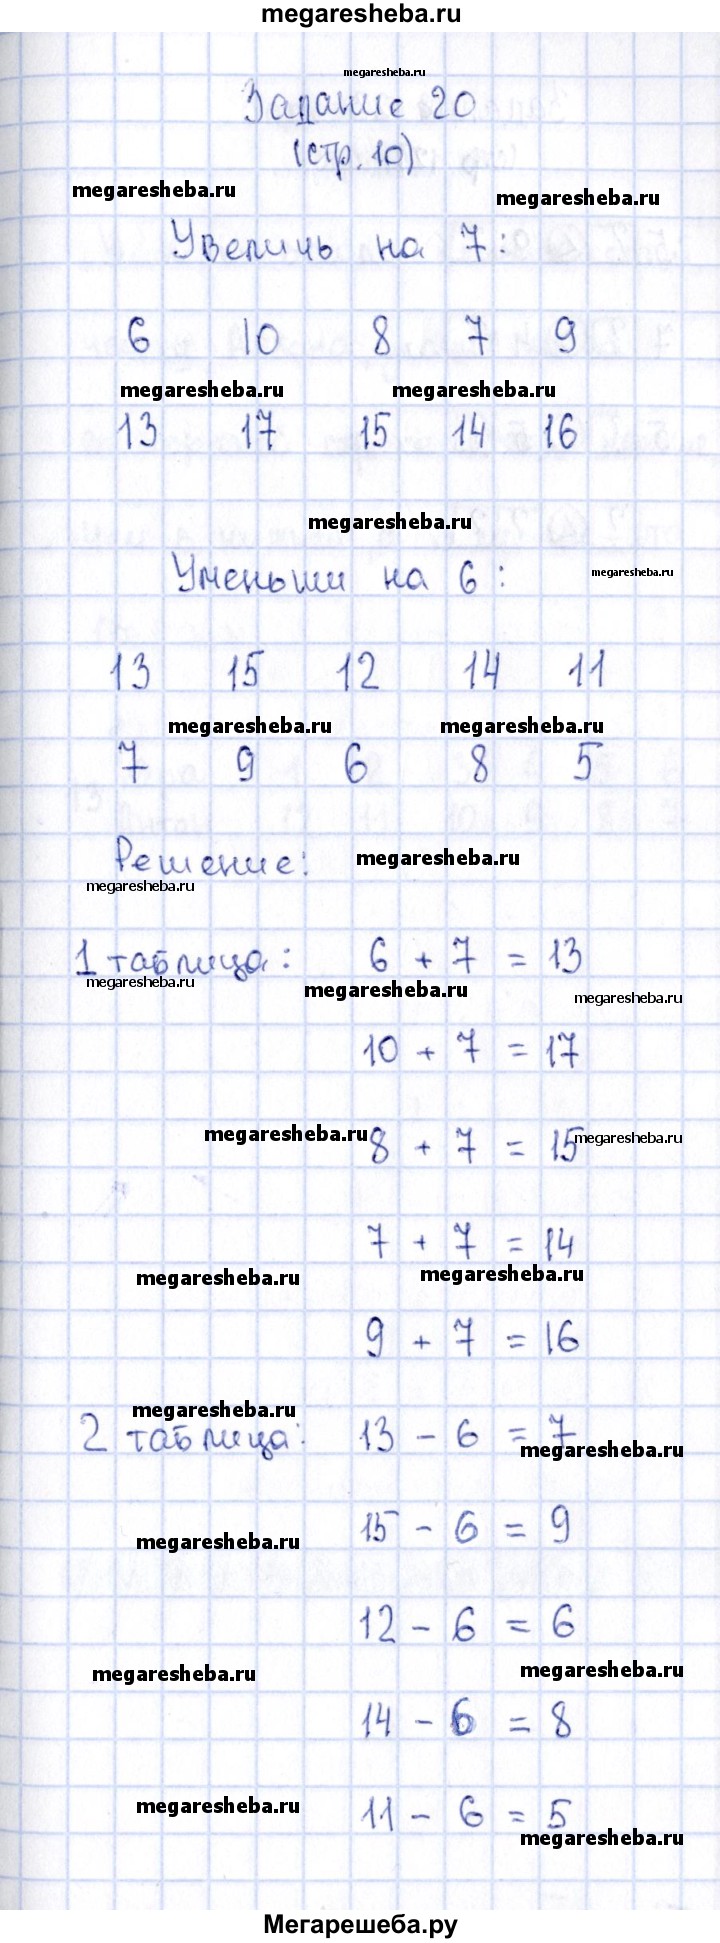 megaresheba.ru
megaresheba.ru
Задание 20
(стр. 10)
megaresheba.ru megaresheba.ru
Увеличь на 7:
6 10 8 7 9
megaresheba.ru megaresheba.ru
13 17 15 14 16
megaresheba.ru
Уменьши на 6: megaresheba.ru
13 15 12 14 11
megaresheba.ru megaresheba.ru
7 9 6 8 5
Решение: megaresheba.ru
megaresheba.ru
1 таблица: 6 + 7 = 13
megaresheba.ru megaresheba.ru megaresheba.ru
10 + 7 = 17
megaresheba.ru megaresheba.ru
8 + 7 = 15
7 + 7 = 14
megaresheba.ru megaresheba.ru
9 + 7 = 16
megaresheba.ru
2 таблица: 13 - 6 = 7
megaresheba.ru
15 - 6 = 9
megaresheba.ru
12 - 6 = 6
megaresheba.ru megaresheba.ru
14 - 6 = 8
megaresheba.ru
11 - 6 = 5
megaresheba.ru
Мегарешеба.ру